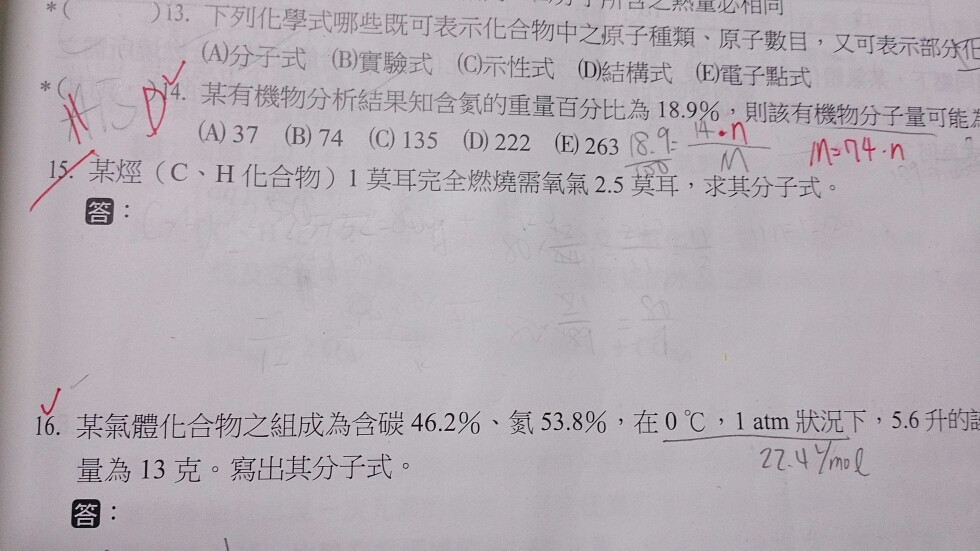 *( )13. 下列化學式哪些既可表示化合物中之原子種類、原子數目，又可表示部分
(A)分子式 (B)實驗式 (C)示性式 (D)結構式 (E)電子點式
*( )14. 某有機物分析結果知含氮的重量百分比為 18.9%，則該有機物分子量可能
(A) 37 (B) 74 (C) 135 (D) 222 (E) 263 18.9/100 = 14·n/M M=74·n
15. 某烴（C、H 化合物）1 莫耳完全燃燒需氧氣 2.5 莫耳，求其分子式。
答：
16. 某氣體化合物之組成為含碳 46.2%、氮 53.8%，在 0 ℃，1 atm 狀況下，5.6 升的
22.4 L/mol
量為 13 克。寫出其分子式。
答：